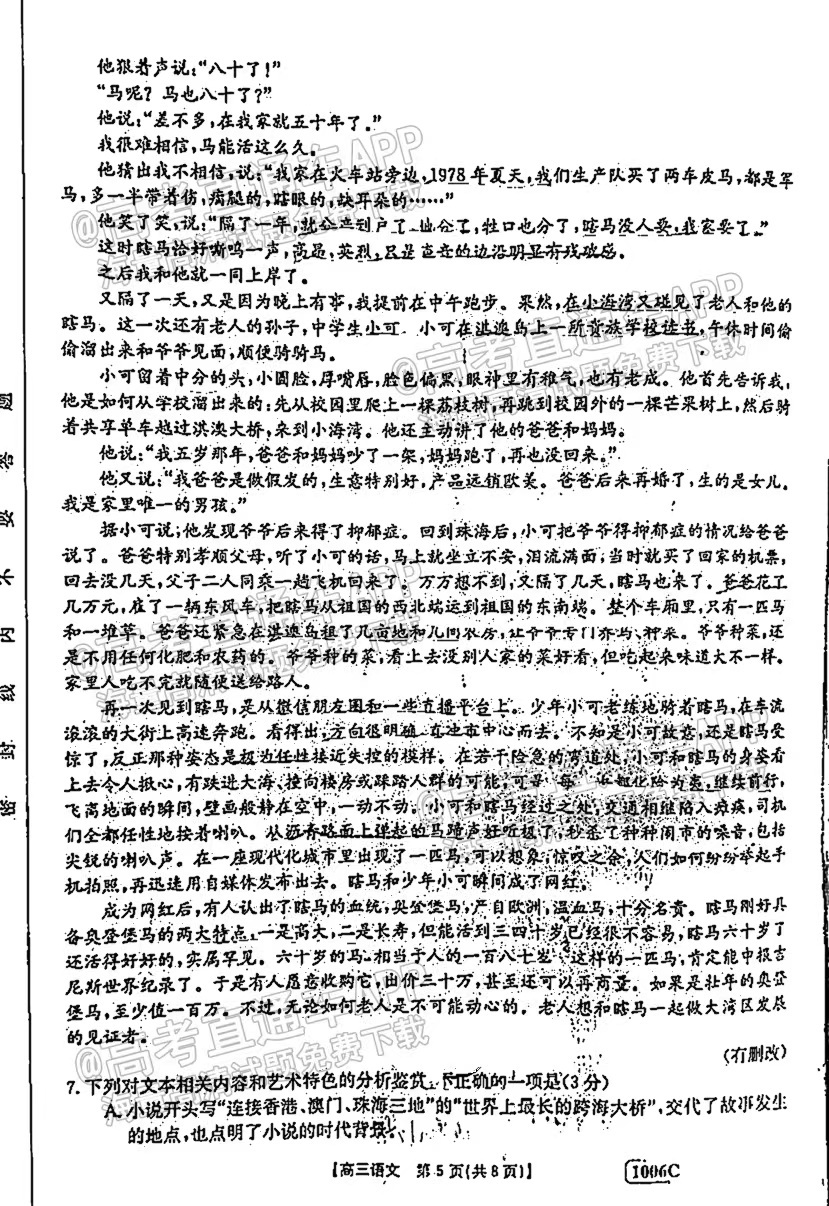 他狠着声说：“八十了！”
“马呢？马也八十了？”
他说：“差不多，在我家就五十年了。”
我很难相信，马能活这么久。
他猜出我不相信，说：“我家在火车站旁边，1978年夏天，我们生产队买了两车皮马，都是军
马，多一半带着伤，病腿的，瞎眼的，缺耳朵的……”
他笑了笑，说：“隔了一年，就包产到户了，地分了，牲口也分了，瞎马没人要，我家要了。”
这时瞎马恰好嘶鸣一声，高昂、英烈，只是声音的边沿明显有残破感。
之后我和他就一同上岸了。
又隔了一天，又是因为晚上有事，我提前在中午跑步。果然，在小海湾又碰见了老人和他的
瞎马。这一次还有老人的孙子，中学生小可。小可在淇澳岛上一所贵族学校读书，午休时间偷
偷溜出来和爷爷见面，顺便骑骑马。
小可留着中分的头，小圆脸，厚嘴唇，脸色偏黑，眼神里有稚气，也有老成。他首先告诉我，
他是如何从学校溜出来的：先从校园里爬上一棵荔枝树，再跳到校园外的一棵芒果树上，然后骑
着共享单车越过淇澳大桥，来到小海湾。他还主动讲了他的爸爸和妈妈。
他说：“我五岁那年，爸爸和妈妈吵了一架，妈妈跑了，再也没回来。”
他又说：“我爸爸是做假发的，生意特别好，产品远销欧美。爸爸后来再婚了，生的是女儿。
我是家里唯一的男孩。”
据小可说，他发现爷爷后来得了抑郁症。回到珠海后，小可把爷爷得抑郁症的情况给爸爸
说了。爸爸特别孝顺父母，听了小可的话，马上就坐立不安，泪流满面，当时就买了回家的机票，
回去没几天，父子二人同乘一趟飞机回来了。万万想不到，又隔了几天，瞎马也来了。爸爸花了
几万元，雇了一辆东风车，把瞎马从祖国的西北端运到祖国的东南端。整个车厢里，只有一匹马
和一堆草。爸爸还紧急在淇澳岛租了几亩地和几间农房，让爷爷专门养马、种菜。爷爷种菜，还
是不用任何化肥和农药的。爷爷种的菜，看上去没别人家的菜好看，但吃起来味道大不一样。
家里人吃不完就随便送给路人。
再一次见到瞎马，是从微信朋友圈和一些直播平台上。少年小可老练地骑着瞎马，在车流
滚滚的大街上高速奔跑。看得出，方向很明确，直达市中心而去。不知是小可故意，还是瞎马受
惊了，反正那种姿态是极为任性接近失控的模样。在若干险急的弯道处，小可和瞎马的身姿看
上去令人揪心，有跌进大海、撞向楼房或踩踏人群的可能，可是，每 化险为夷，继续前行，
飞离地面的瞬间，壁画般静在空中，一动不动。小可和瞎马经过之处，交通相继陷入瘫痪，司机
们全都任性地按着喇叭。从沥青路面上弹起的马蹄声好听极了，秒杀了种种闹市的噪音，包括
尖锐的喇叭声。在一座现代化城市里出现了一匹马，可以想象，惊叹之余，人们如何纷纷举起手
机拍照，再迅速用自媒体发布出去。瞎马和少年小可瞬间成了网红。
成为网红后，有人认出了瞎马的血统，奥登堡马，产自欧洲，温血马，十分名贵。瞎马刚好具
备奥登堡马的两大特点，一是高大，二是长寿，但能活到三四十岁已经很不容易，瞎马六十岁了
还活得好好的，实属罕见。六十岁的马，相当于人的一百八十七岁，这样的一匹马，肯定能申报吉
尼斯世界纪录了。于是有人愿意收购它，出价三十万，甚至还可以再商量。如果是壮年的奥登
堡马，至少值一百万。不过，无论如何老人是不可能动心的。老人想和瞎马一起做大湾区发展
的见证者。
（有删改）
7. 下列对文本相关内容和艺术特色的分析鉴赏，不正确的一项是(3分)
A. 小说开头写“连接香港、澳门、珠海三地”的“世界上最长的跨海大桥”，交代了故事发生
的地点，也点明了小说的时代背景。
【高三语文 第5页(共8页)】
1006C
密封线内不要答题
@高考直通车APP
海量精品试题免费下载